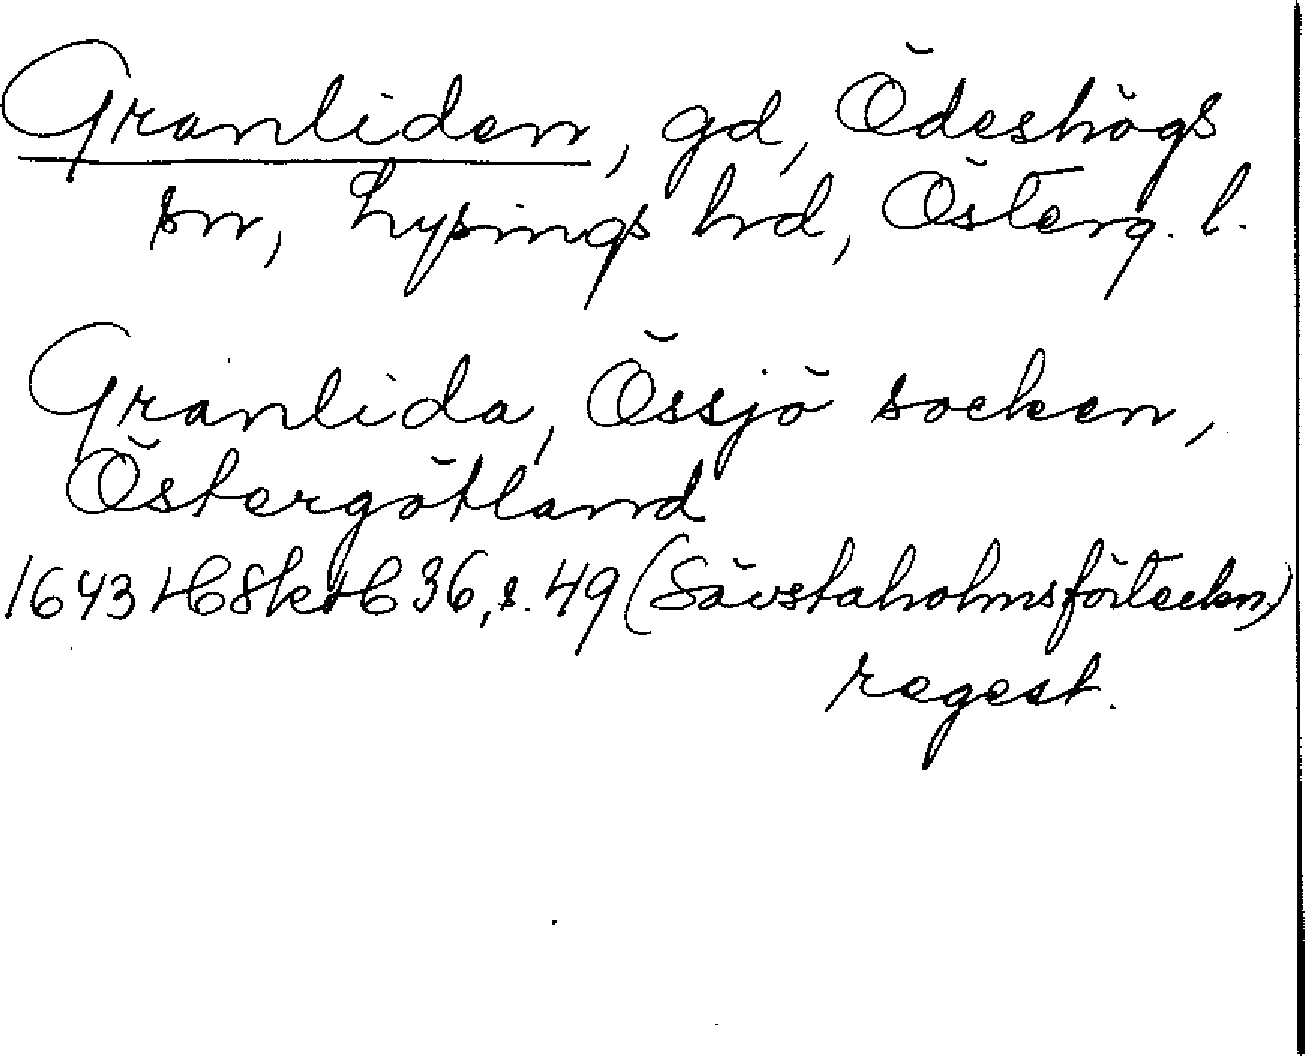 Granliden, gd, Ödeshögs
sn, Lysings hd, Österg. l.
Granlida, Össjö socken,
Östergötland
1643 HSkH 36, s. 49 (Sävstaholmsförteckn.)
regest.